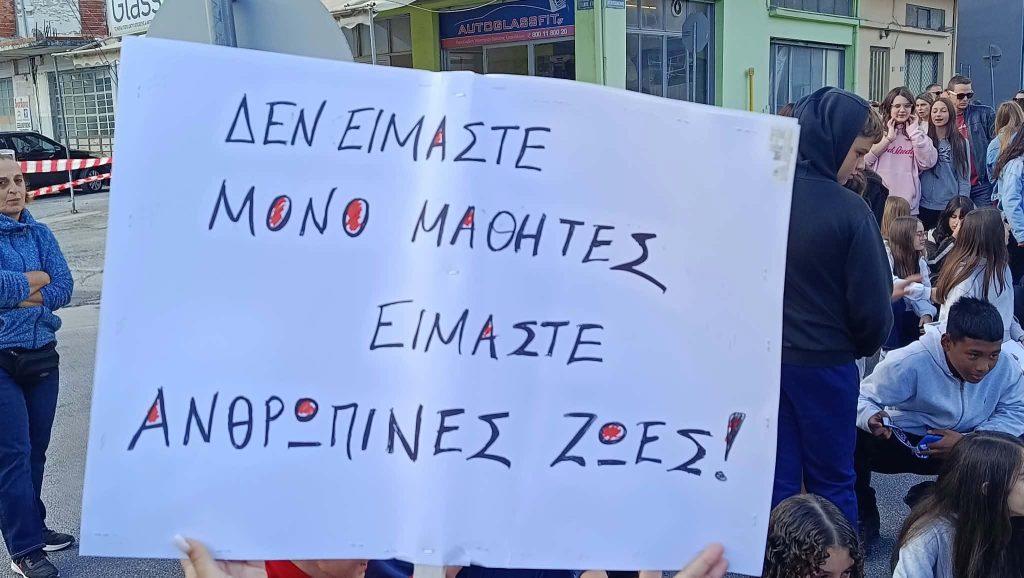 Glass
AUTOGLASSFIT.gr
800 11 800 20
ΔΕΝ ΕΙΜΑΣΤΕ
ΜΟΝΟ ΜΑΘΗΤΕΣ
ΕΙΜΑΣΤΕ
ΑΝΘΡΩΠΙΝΕΣ ΖΩΕΣ!